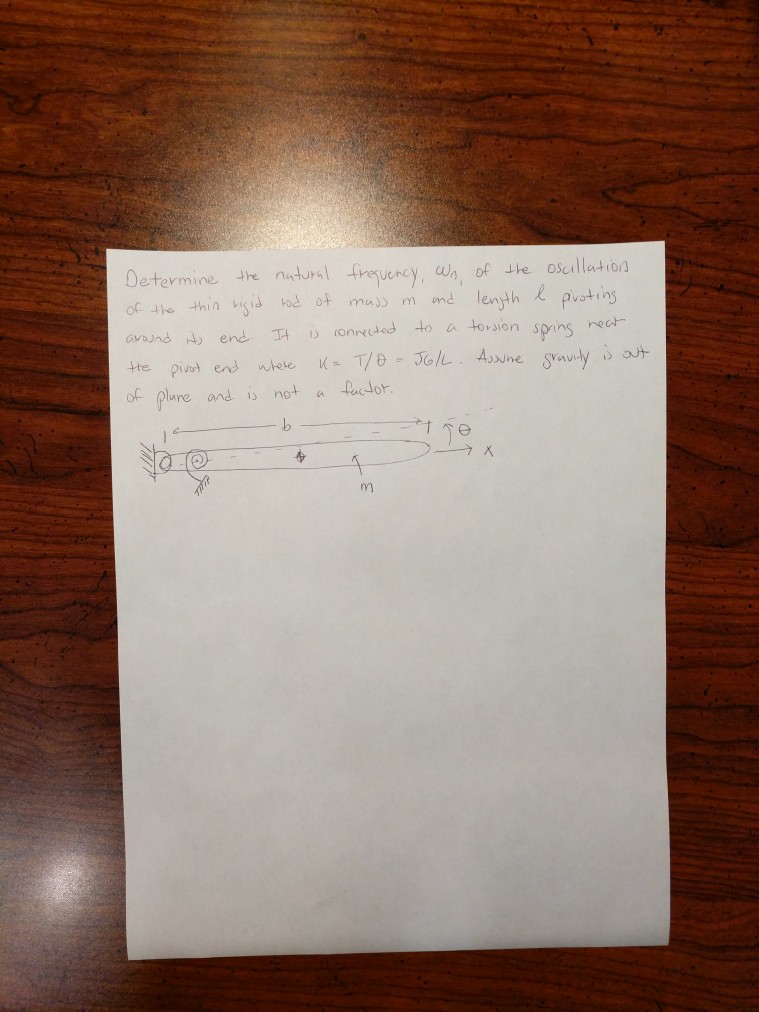 Determine the natural frequency, ωn, of the oscillation
of the thin rigid rod of mass m and length l pivoting
around its end. It is connected to a torsion spring near
the pivot end where K = T/θ = JG/L. Assume gravity is out
of plane and is not a factor.
b
θ
x
m